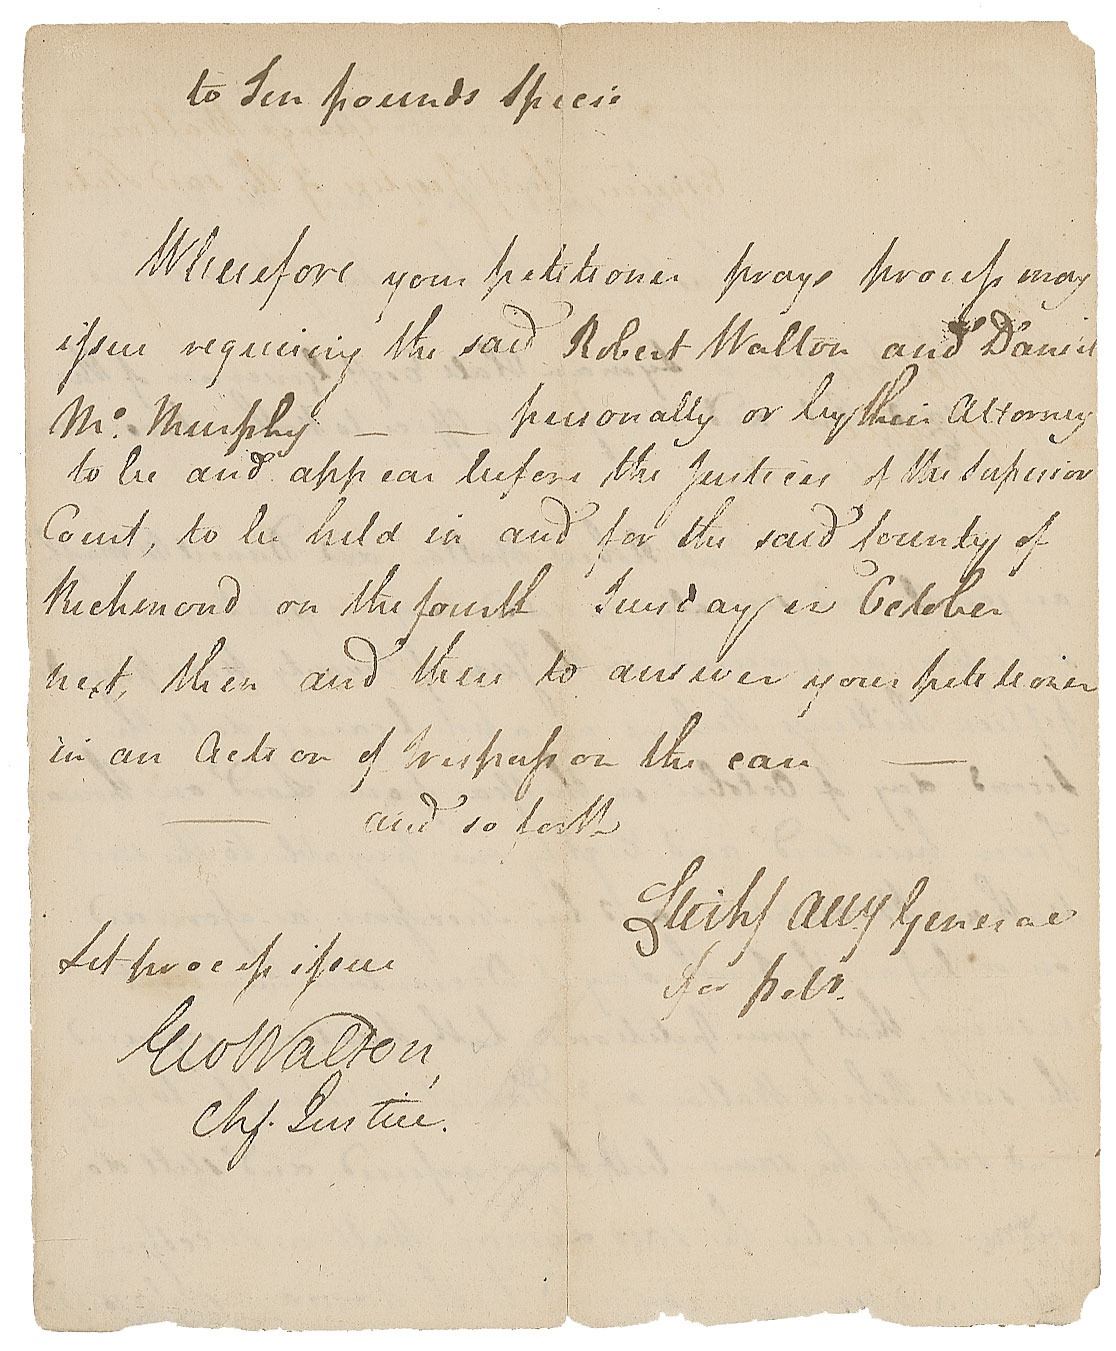 to Ten pounds Specie
Wherefore your petitioner prays process may
issue requiring the said Robert Walton and Daniel
Mc. Murphy — — personally or by their Attorney
to be and appear before the Justices of the Superior
Court, to be held in and for the said County of
Richmond on the fourth Tuesday in October
next, then and there to answer your petitioner
in an Action of Trespass on the case —
— and so forth
Atty General
for petr.
Let process issue
Geo Walton,
Chf. Justice.